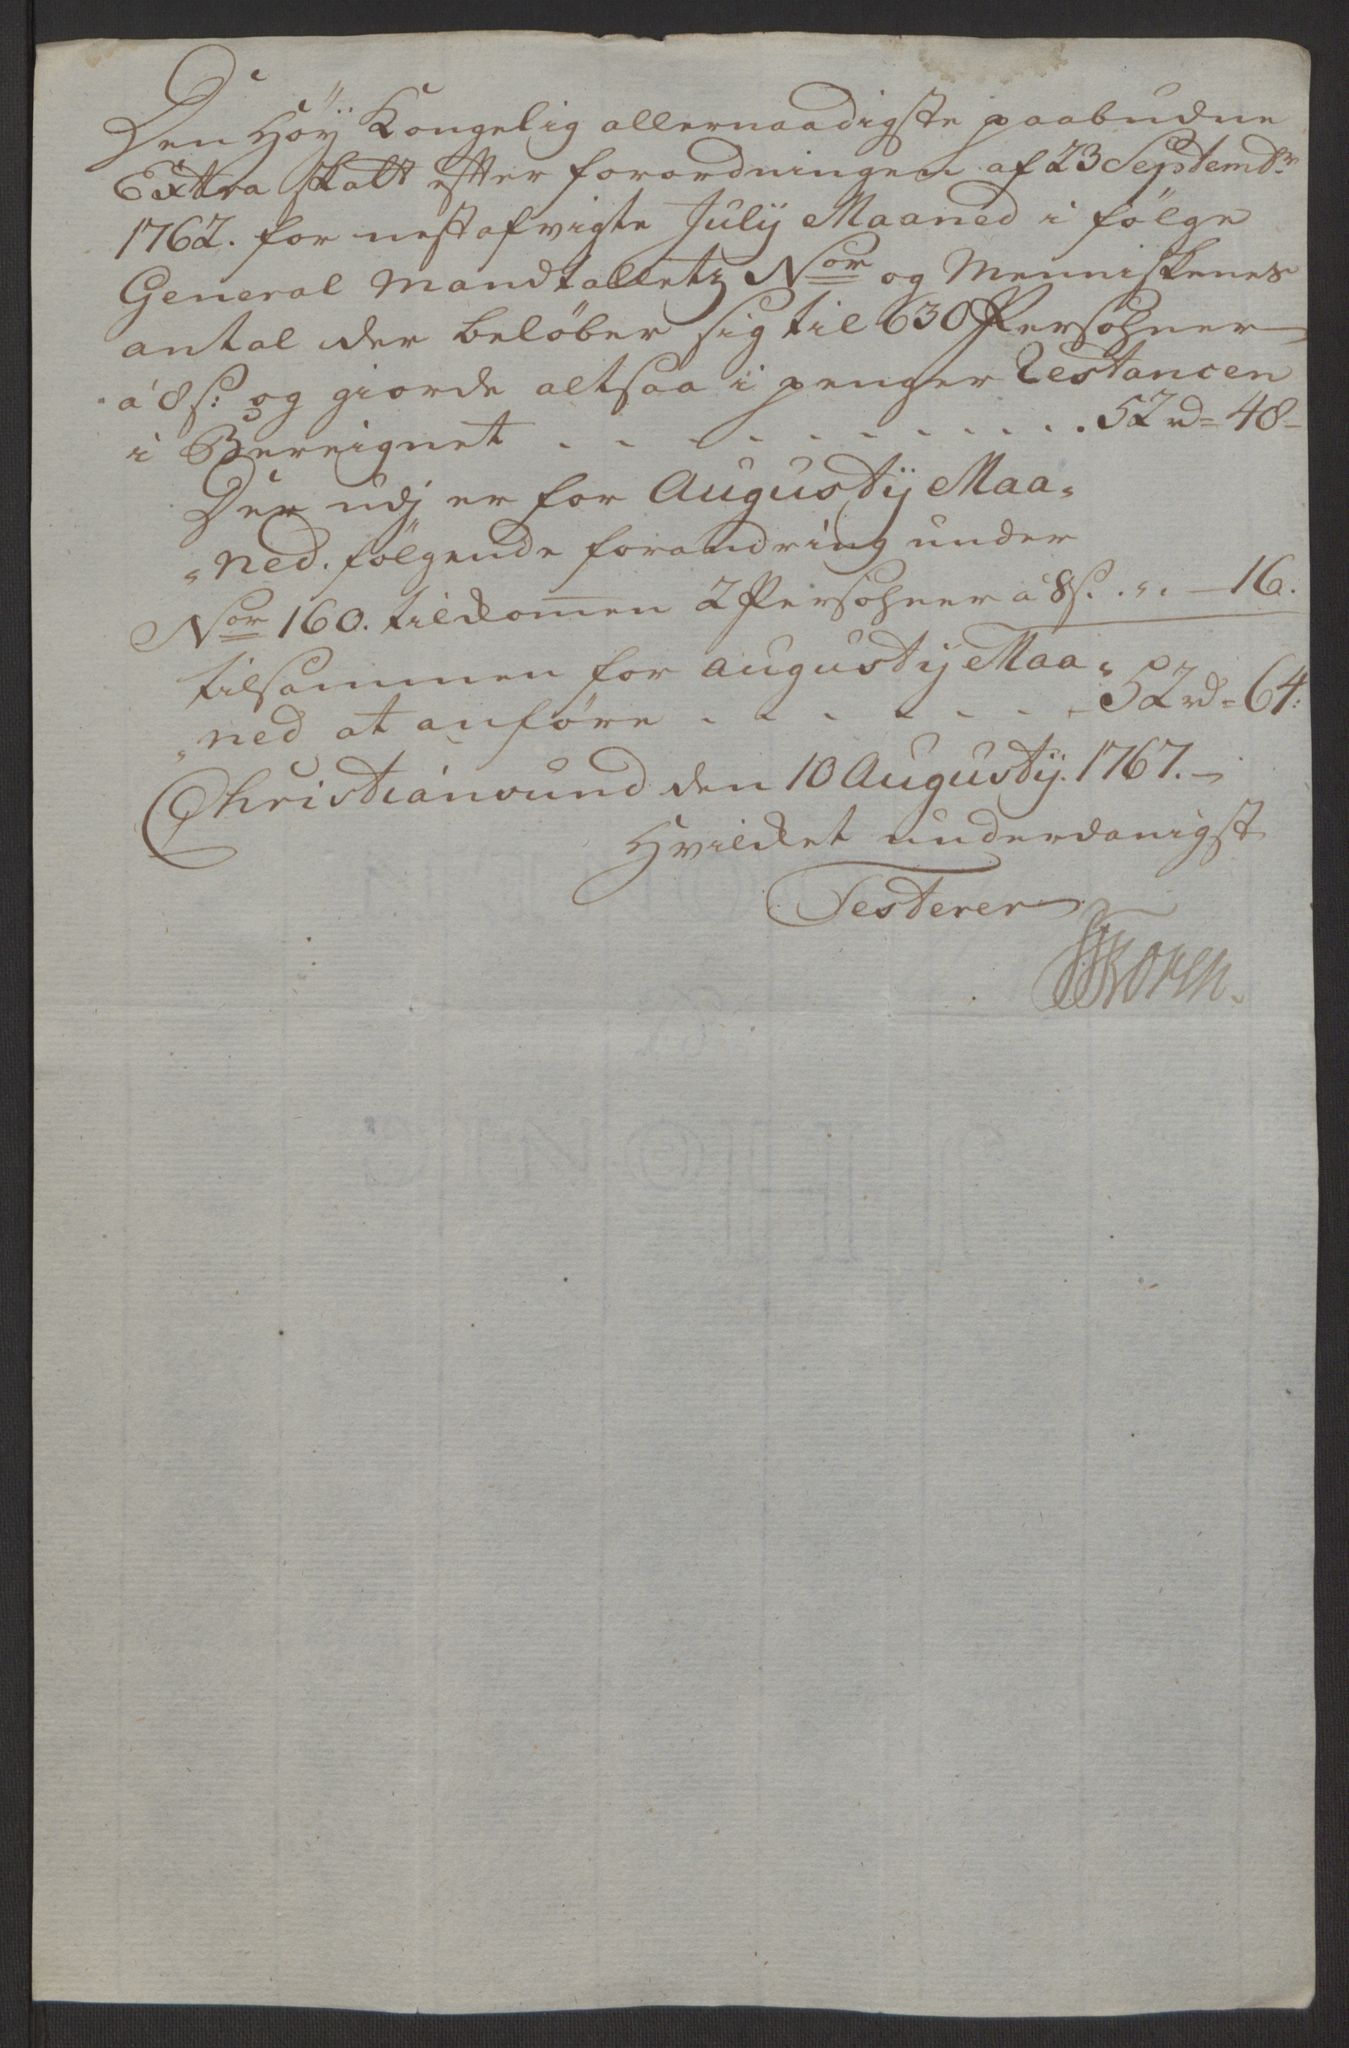 Den Höÿ Kongelig allernaadigste paabudne
Extra skatt efter forordningen af 23 Septembr:
1762. for nestafvigte Julÿ Maaned i følge
General Mandtallets Nor og Menniskenes
antal der beløber sig til 630 Persohner
a 8 s: og giorde altsaa i penger Restancen
i Bereignet . . . . . . . . . . . 52 rd = 48 -
Der udj er for Augustÿ Maa=
=ned. følgende forandring under
Nor 160. tilkommen 2 Persohner a 8 s. . . . - 16.
tilsammen for Augustÿ Maa=
=ned at anføre . . . . . . . 52 rd = 64:
Christiansund den 10 Augustÿ. 1767. -
Hvilket underdanigst
Testerer
Koren.